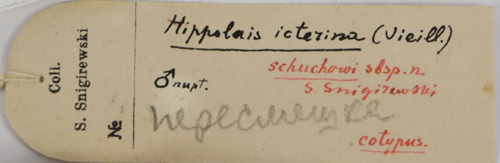 Coll.
S. Snigirewski
№
Hippolais icterina (Vieill.)
schuchowi sbsp. n.
S. Snigirewski
♂ nupt.
пересмешка
cotypus.